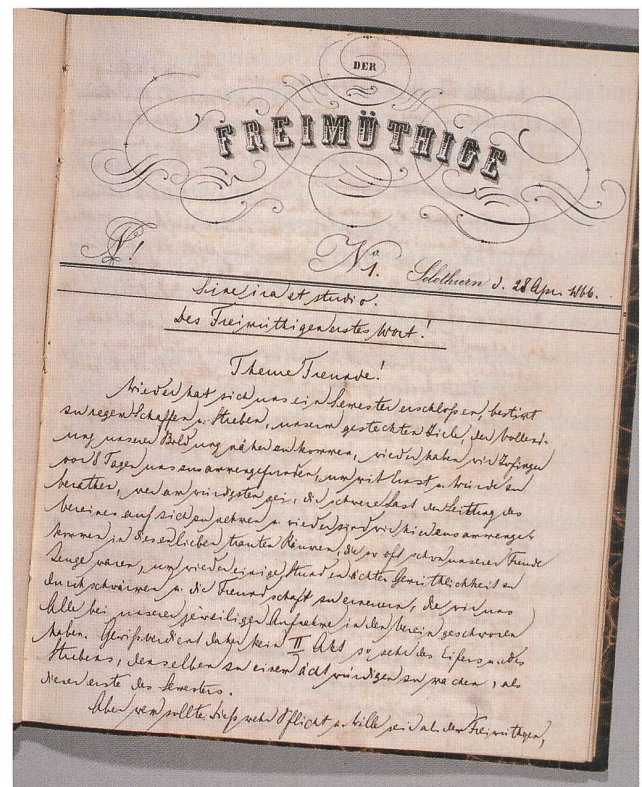 DER
FREIMÜTHIGE
No 1. Solothurn d. 28 Apr. 1866.
Sine ira et studio.
Des Freimüthigen erstes Wort!
Theure Freunde!
Wieder hat sich uns ein Semester erschlossen, bestimt
zu regem Schaffen u. Streben, unserm gesteckten Ziele, der Vollend-
ung unserer Bildung näher zu kommen, wieder haben wir Zofinger
vor 8 Tagen uns zusammengefunden, um mit Ernst u. Würde zu
berathen, wer am würdigsten sei, die schwere Last der Leitung des
Vereines auf sich zu nehmen u. wieder sind wir hier zusammenge-
kommen in diesen lieben, trauten Räumen, die so oft schon unserer Freude
Zeuge waren, um wieder einige Stunden ächter Gemüthlichkeit zu
durchschwärmen u. die Freundschaft zu erneuern, die wir uns
Alle bei unserer jeweiligen Aufnahme in den Verein geschworen
haben. Gewiss verdient daher kein II Akt so sehr des Eifers u. des
Strebens, denselben zu einem ächt würdigen zu machen, als
dieser erste des Semesters.
Aber wem sollte dies mehr Pflicht u. Wille sein als dem Freimüthigen,